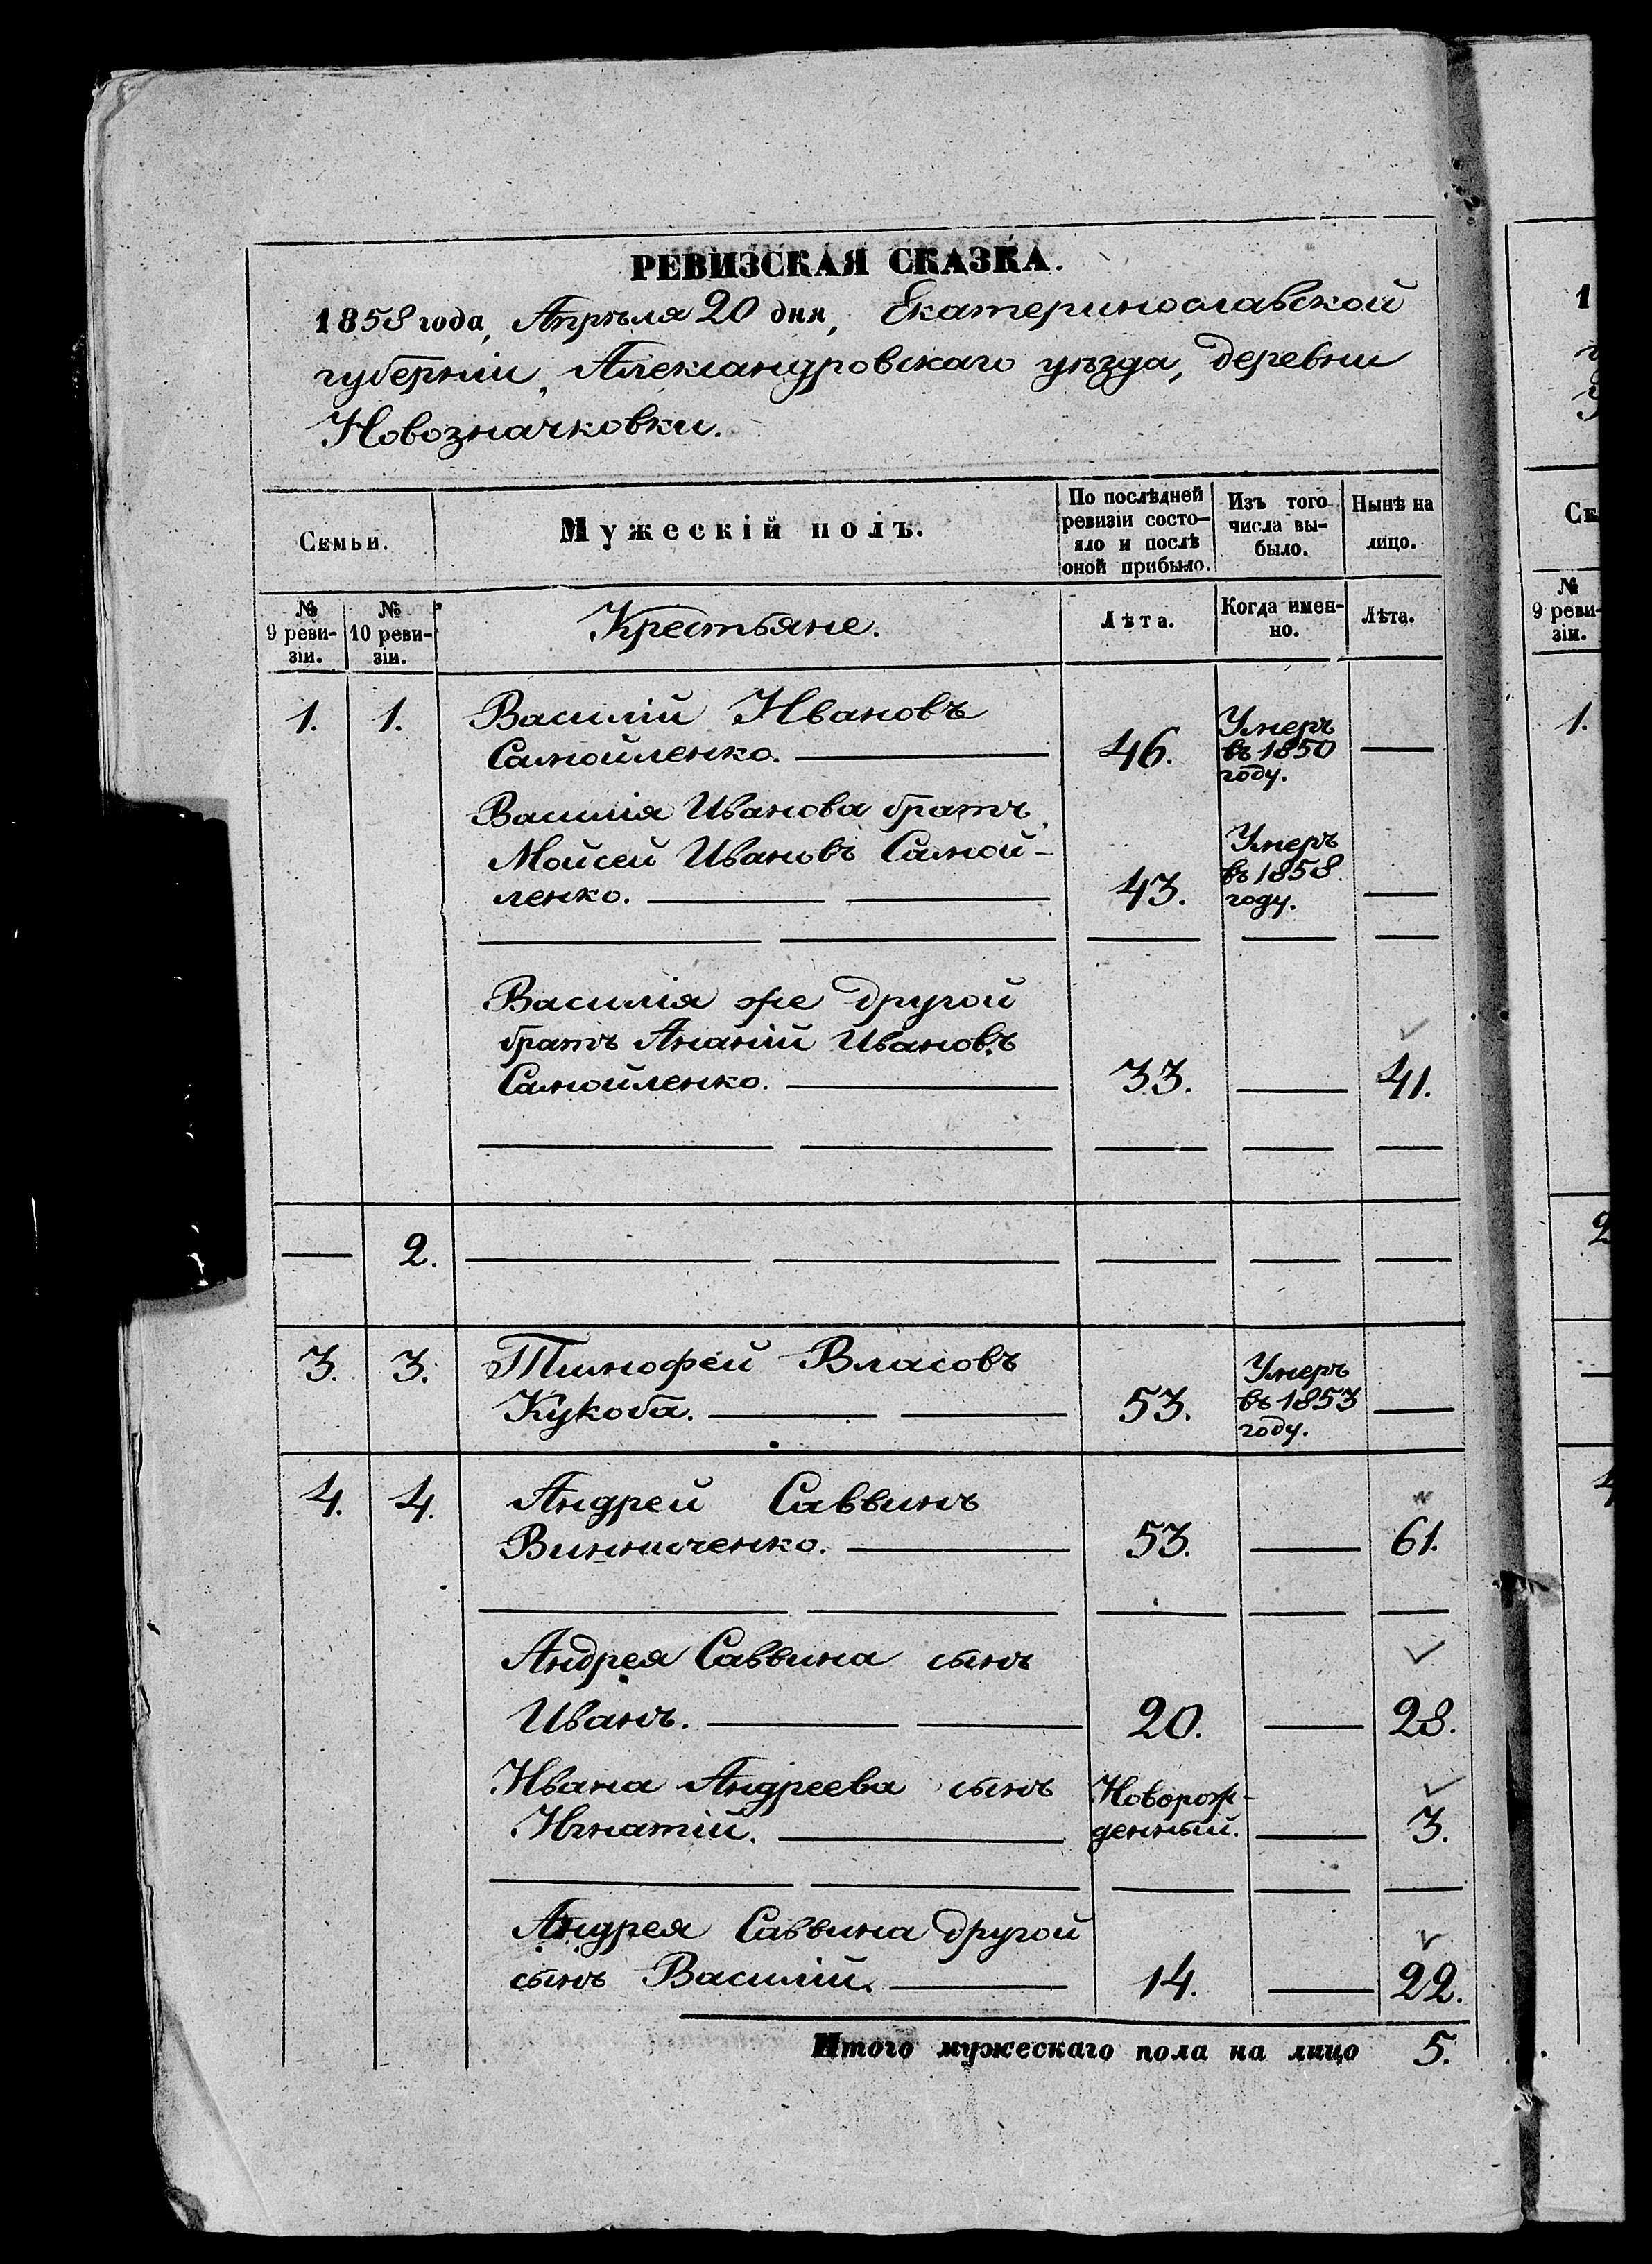 РЕВИЗСКАЯ СКАЗКА.
1858 года, Апрѣля 20 дня, Екатеринославской
губерніи, Александровскаго уѣзда, деревни
Новозначковки.
Семьи.
Мужескій полъ.
По послѣдней
ревизіи состо-
яло и послѣ
оной прибыло.
Изъ того
числа вы-
было.
Нынѣ на
лицо.
№
9 реви-
зіи.
№
10 реви-
зіи.
Крестьяне.
Лѣта.
Когда имен-
но.
Лѣта.
1. 1. Василій Ивановъ
Самойленко. 46. Умеръ
въ 1850
году.
Василія Иванова братъ
Мойсей Ивановъ Самой-
ленко. 43. Умеръ
въ 1858
году.
Василія же другой
братъ Ананій Ивановъ
Самойленко. 33. 41.
2.
3. 3. Тимофей Власовъ
Кукоба. 53. Умеръ
въ 1853
году.
4. 4. Андрей Саввинъ
Винниченко. 53. 61.
Андрея Саввина сынъ
Иванъ. 20. 28.
Ивана Андреева сынъ Новорож-
Игнатій. денный. 3.
Андрея Саввина другой
сынъ Василій. 14. 22.
Итого мужескаго пола на лицо 5.
1
Се
№
9 реви-
зіи.
1.
2
4